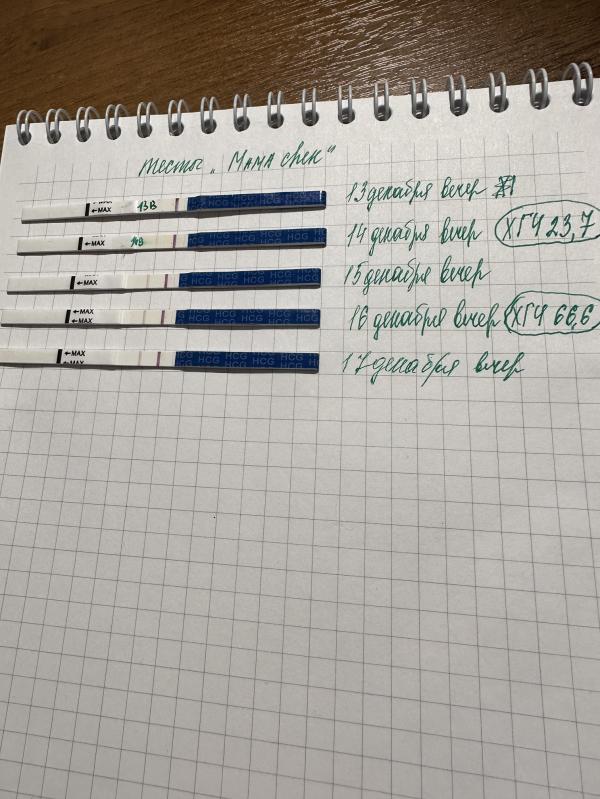 тесты „Мама chек“
←MAX 13В HCG HCG HCG HCG 13 декабря вечер
←MAX 14В HCG HCG HCG HCG 14 декабря вечер ХГЧ 23,7
←MAX HCG HCG HCG HCG 15 декабря вечер
←MAX HCG HCG HCG HCG 16 декабря вечер ХГЧ 66,6
←MAX HCG HCG HCG HCG 17 декабря вечер